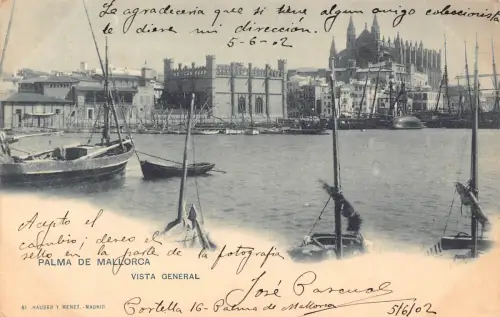 Le agradeceria que si tiene algun amigo coleccionista
le diera mi dirección.
5-6-02
Acepto el
cambio; deseo el sello
en la parte de la fotografia
PALMA DE MALLORCA
VISTA GENERAL
José Pascual
Portella 16 - Palma de Mallorca
5/6/02
61 HAUSER Y MENET.-MADRID